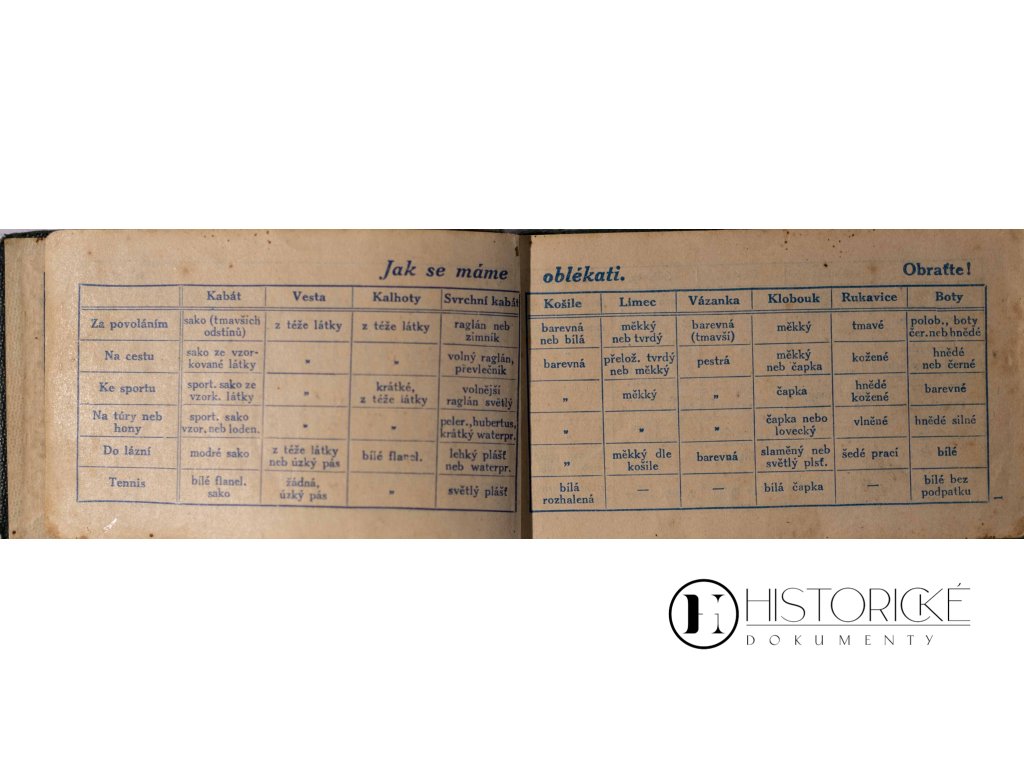 Jak se máme oblékati. Obraťte!
Kabát Vesta Kalhoty Svrchní kabát Košile Limec Vázanka Klobouk Rukavice Boty
Za povoláním sako (tmavších odstínů) z téže látky z téže látky raglán neb zimník barevná neb bílá měkký neb tvrdý barevná (tmavší) měkký tmavé polob., boty čer. neb hnědé
Na cestu sako ze vzor- kované látky „ „ volný raglán, převlečník barevná přelož. tvrdý neb měkký pestrá měkký neb čapka kožené hnědé neb černé
Ke sportu sport. sako ze vzork. látky „ krátké, z téže látky volnější raglán světlý „ měkký „ čapka hnědé kožené barevné
Na túry neb hony sport. sako vzor. neb loden. „ „ peler., hubertus, krátký waterpr. „ „ „ čapka nebo lovecký vlněné hnědé silné
Do lázní modré sako z téže látky neb úzký pás bílé flanel. lehký plášť neb waterpr. „ měkký dle košile barevná slaměný neb světlý plsť. šedé prací bílé
Tennis bílé flanel. sako žádná, úzký pás „ světlý plášť bílá rozhalená — — bílá čapka — bílé bez podpatku
1
HISTORICKÉ
DOKUMENTY